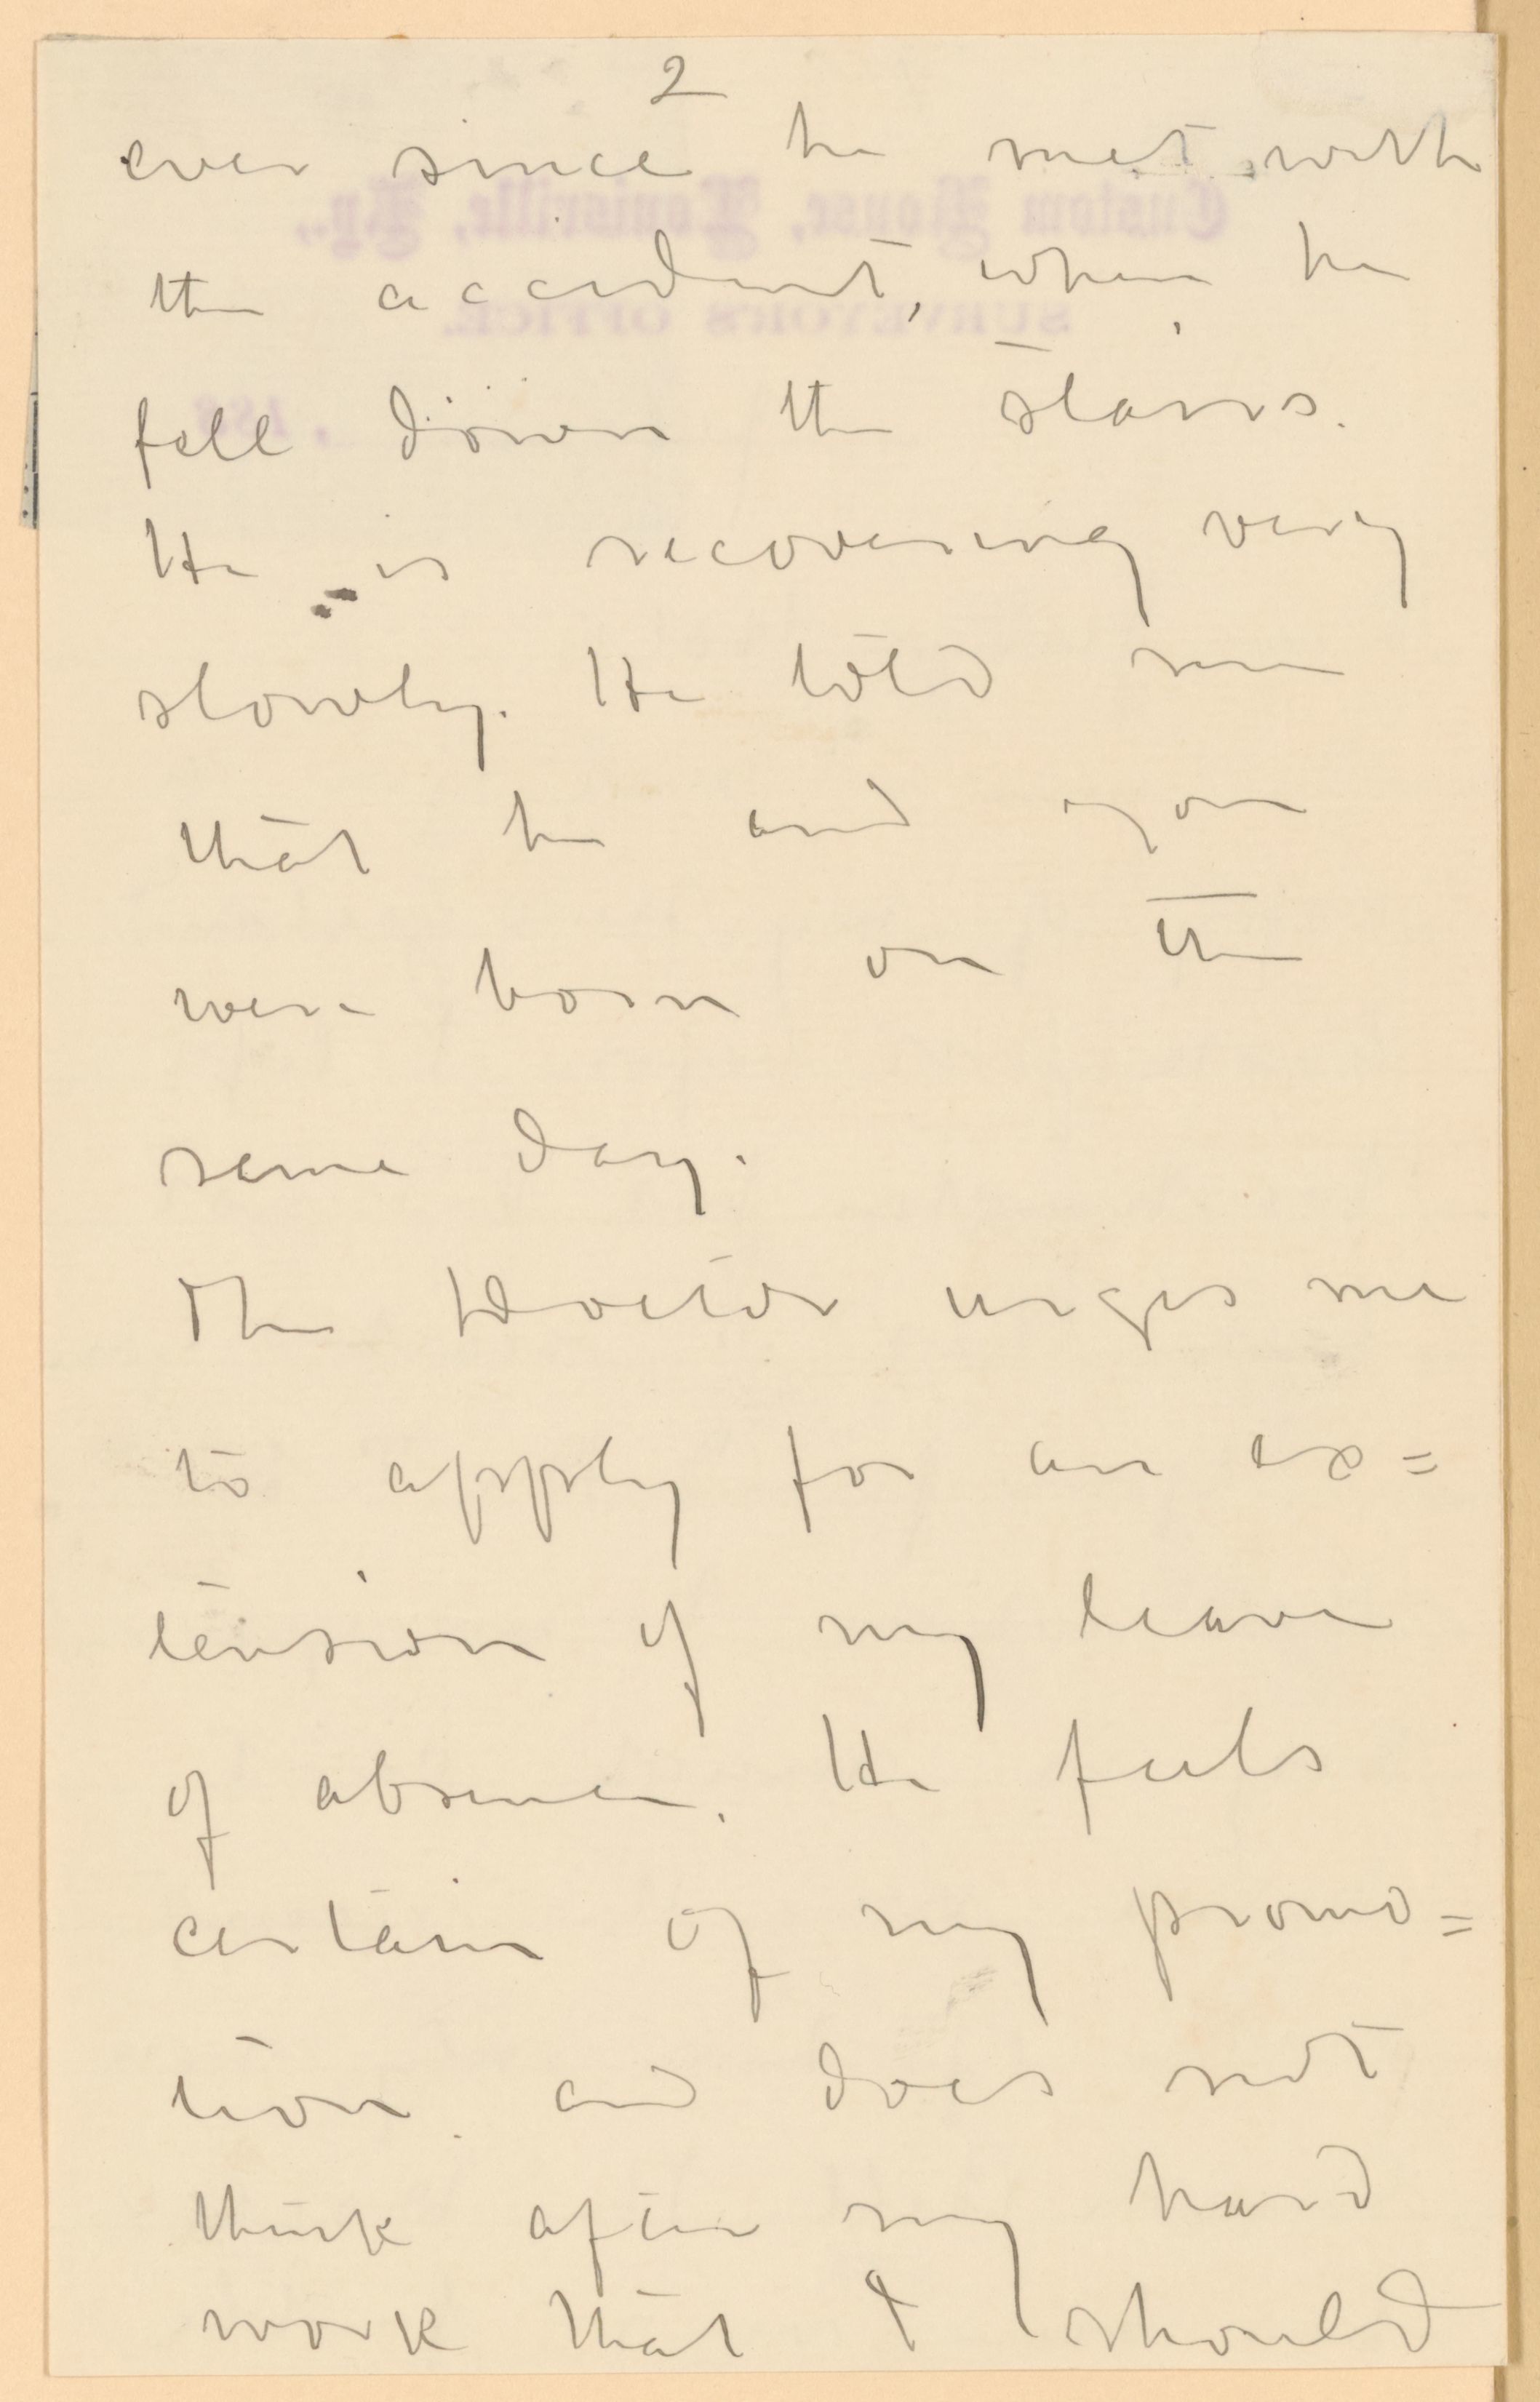 2
ever since he met with
the accident, when he
fell down the stairs.
He is recovering very
slowly. He told me
that he and you
were born on the
same day.
The Doctor urges me
to apply for an ex=
tension of my leave
of absence. He feels
certain of my promo=
tion and does not
think after my hard
work that I should
Custom House, Louisville, Ky.,
SURVEYOR'S OFFICE.
, 188